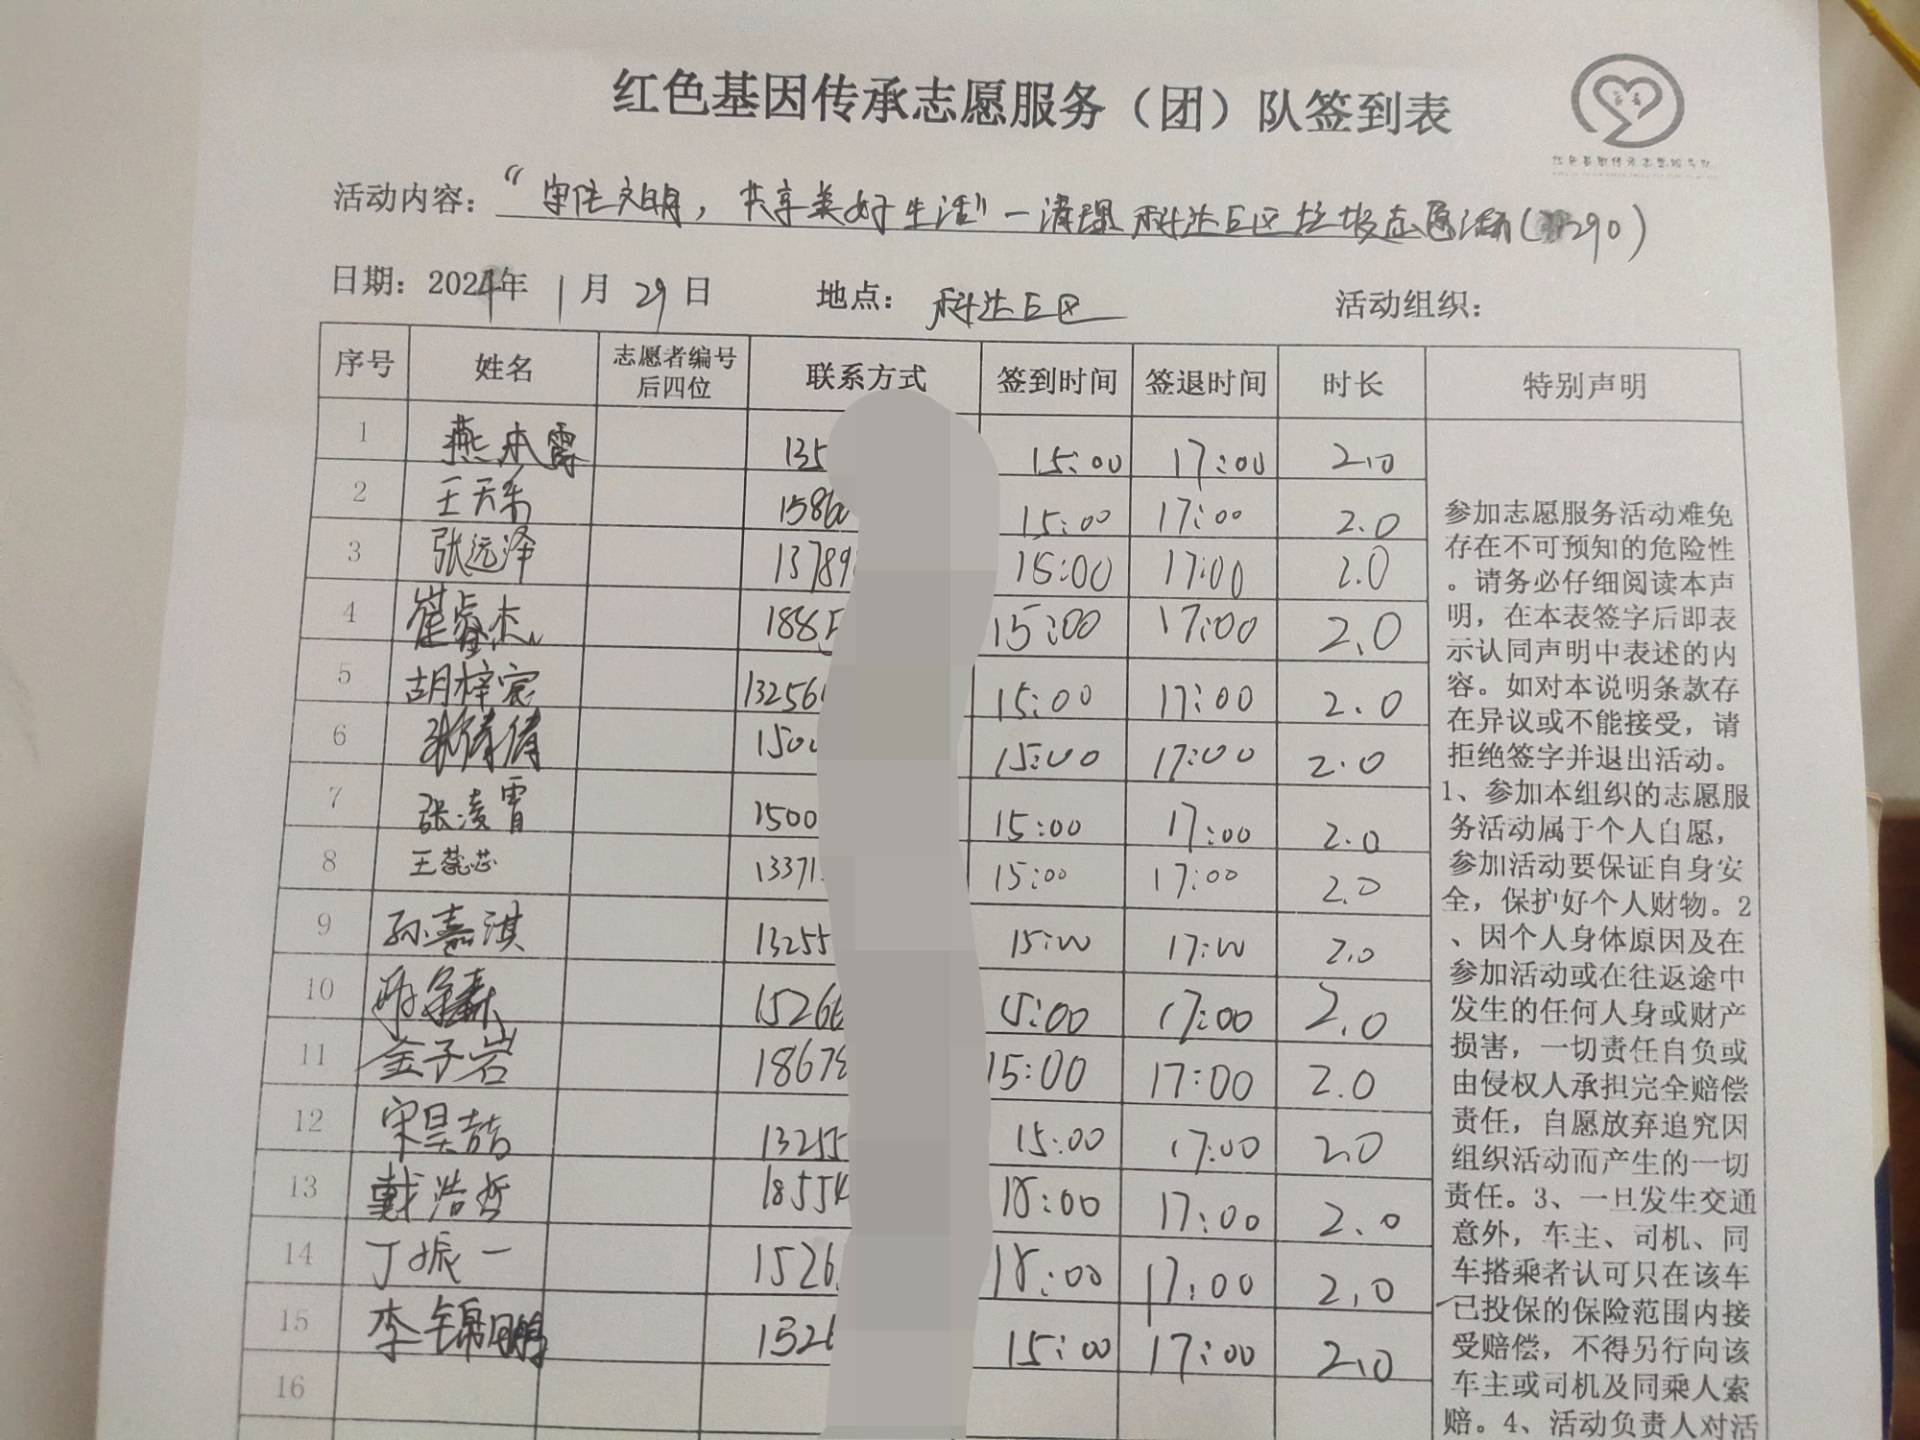 红色基因传承志愿服务（团）队签到表
活动内容：“守住文明，共享美好生活”—清理科达E区垃圾志愿活动(290)
日期：2024年 1月 29日 地点：科达E区 活动组织：
序号 姓名 志愿者编号后四位 联系方式 签到时间 签退时间 时长 特别声明
1 燕本霖 135 15:00 17:00 2.0
2 王天乐 15866 15:00 17:00 2.0
3 张远泽 13789 15:00 17:00 2.0
4 崔睿杰 1885 15:00 17:00 2.0
5 胡梓宸 13256 15:00 17:00 2.0
6 张倩倩 1500 15:00 17:00 2.0
7 张凌霄 1500 15:00 17:00 2.0
8 王蕊芯 13371 15:00 17:00 2.0
9 孙嘉淇 13255 15:00 17:00 2.0
10 15266 15:00 17:00 2.0
11 金子岩 18678 15:00 17:00 2.0
12 宋昊喆 13255 15:00 17:00 2.0
13 戴浩哲 18554 15:00 17:00 2.0
14 丁振一 1526 15:00 17:00 2.0
15 李锦鹏 1526 15:00 17:00 2.0
16
参加志愿服务活动难免
存在不可预知的危险性
。请务必仔细阅读本声
明，在本表签字后即表
示认同声明中表述的内
容。如对本说明条款存
在异议或不能接受，请
拒绝签字并退出活动。
1、参加本组织的志愿服
务活动属于个人自愿，
参加活动要保证自身安
全，保护好个人财物。2
、因个人身体原因及在
参加活动或在往返途中
发生的任何人身或财产
损害，一切责任自负或
由侵权人承担完全赔偿
责任，自愿放弃追究因
组织活动而产生的一切
责任。3、一旦发生交通
意外，车主、司机、同
车搭乘者认可只在该车
已投保的保险范围内接
受赔偿，不得另行向该
车主或司机及同乘人索
赔。4、活动负责人对活